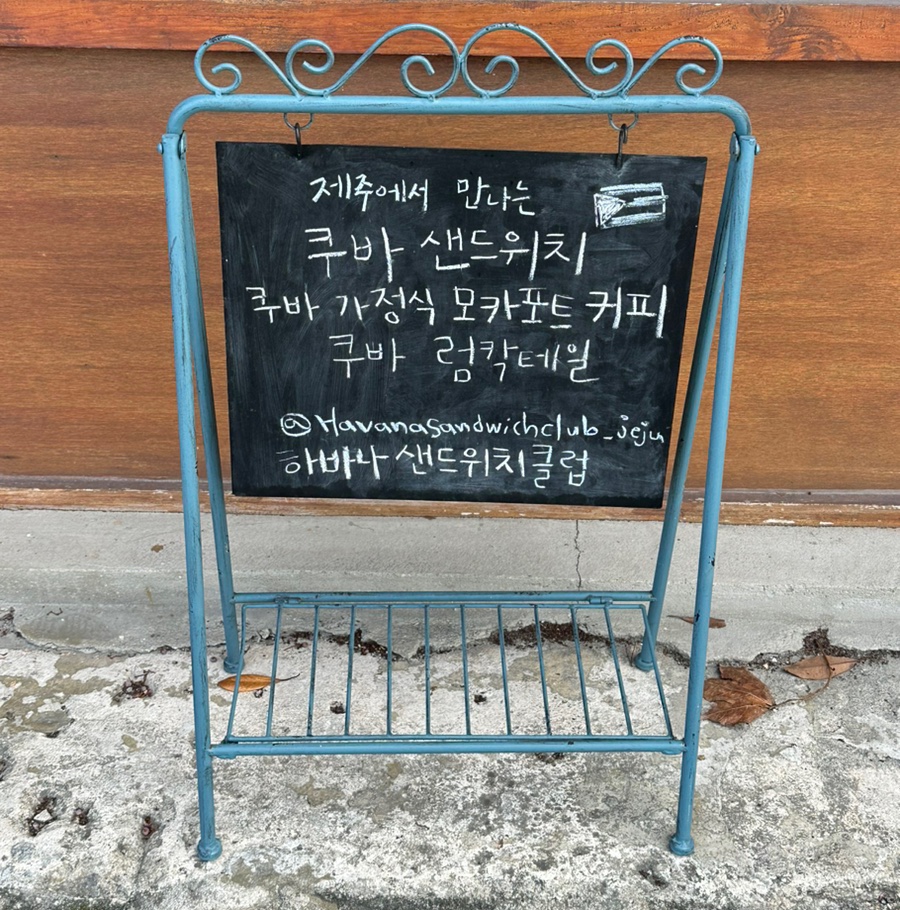 제주에서 만나는
쿠바 샌드위치
쿠바 가정식 모카포트 커피
쿠바 럼칵테일
@Havanasandwichclub_jeju
하바나 샌드위치클럽